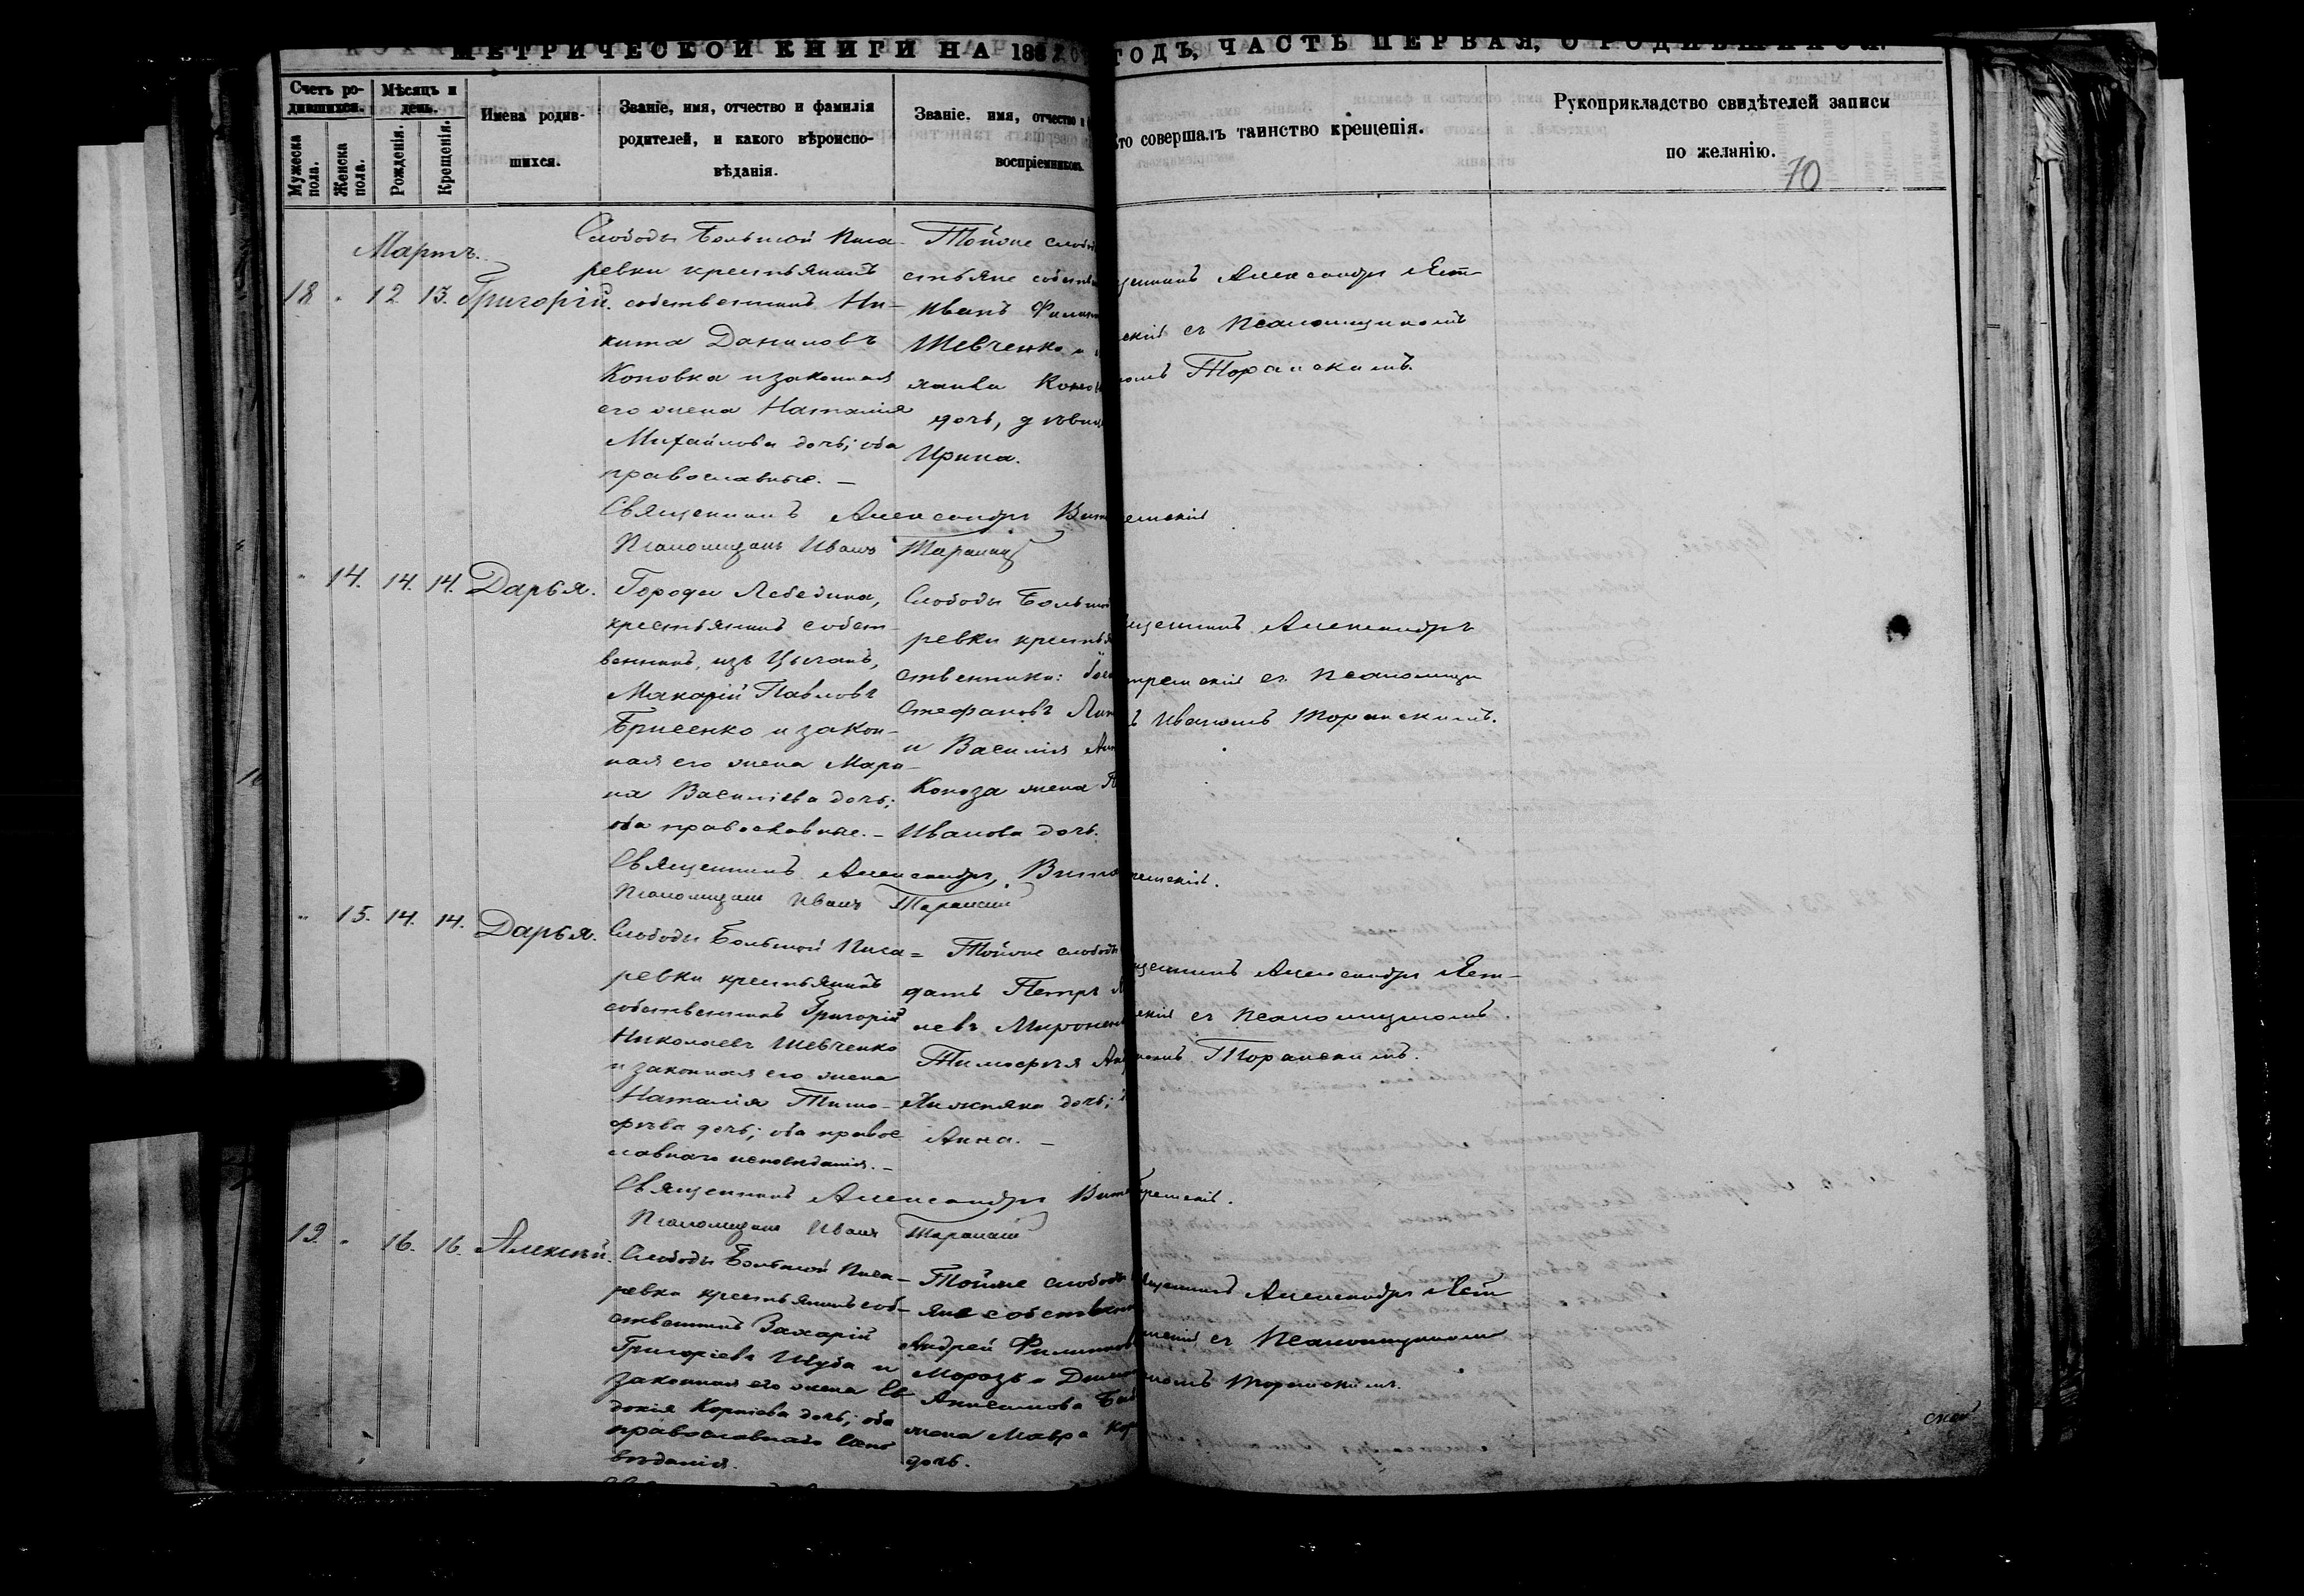 МЕТРИЧЕСКОЙ КНИГИ НА 188
ГОДЪ, ЧАСТЬ ПЕРВАЯ, О РОДИВШИХСЯ.
Счетъ ро-
дившихся.
Мужеска
пола.
Женска
пола.
Мѣсяцъ и
день.
Рожденія.
Крещенія.
Имена родив-
шихся.
Званіе, имя, отчество и фамилія
родителей, и какого вѣроиспо-
вѣданія.
Званіе, имя, отчество и
воспріемниковъ.
Кто совершалъ таинство крещенія.
Рукоприкладство свидѣтелей записи
по желанію.
70
Мартъ.
18 " 12 13. Григорій.
Слободы Большой Писа-
ревки крестьянинъ
собственникъ Ни-
кита Даниловъ
Коновка и законная
его жена Наталія
Михайлова дочь; оба
православные. —
Тойже слобо
стьяне собств
Иванъ Филип
Шевченко и
дочь, дѣвиц
Ирина.
щенникъ Александръ Вит
скій съ Псаломщикомъ
номъ Торанскимъ.
Священникъ Александръ Вит емскій
Псаломщикъ Иванъ Торанскій
" 14. 14. 14. Дарья.
Города Лебедина,
крестьянинъ собст-
венникъ, изъ Цыганъ,
Макарій Павловъ
Брисенко и закон-
ная его жена Мари-
на Василіева дочь;
оба православные. —
Слободы Большой
ревки крестья
ственники:
Стефановъ
и Василія
Коноза жена
Иванова дочь.
щенникъ Александръ
тремскій съ Псаломщи
ъ Иваномъ Торанскимъ.
Священникъ Александръ Вит ремскій.
Псаломщикъ Иванъ Торанскій
" 15. 14. 14. Дарья.
Слободы Большой Писа-
ревки крестьянинъ
собственникъ Григорій
Николаевъ Шевченко
и законная его жена
Наталія Тимо-
феева дочь; оба правос
лавнаго исповѣданія. —
Тойже слободы
датъ Петръ
невъ Миронен
Тимофея
дочь;
Анна. —
щенникъ Александръ Вит-
скій съ Псаломщикомъ
номъ Торанскимъ.
Священникъ Александръ Вит ремскій.
Псаломщикъ Иванъ Торанскій
19. " 16. 16. Алексѣй.
Слободы Большой Писа-
ревки крестьянинъ соб-
ственникъ Захарій
Григоріевъ Шуба и
законная его жена Ев
докія Корніева дочь; оба
православнаго испо
вѣданія.
Тойже слободы
яне собствен
Андрей Филиппов
Морозъ и
Анисимова
жена Мавра
дочь.
щенникъ Александръ Вит
мскій съ Псаломщикомъ
номъ Торанскимъ.